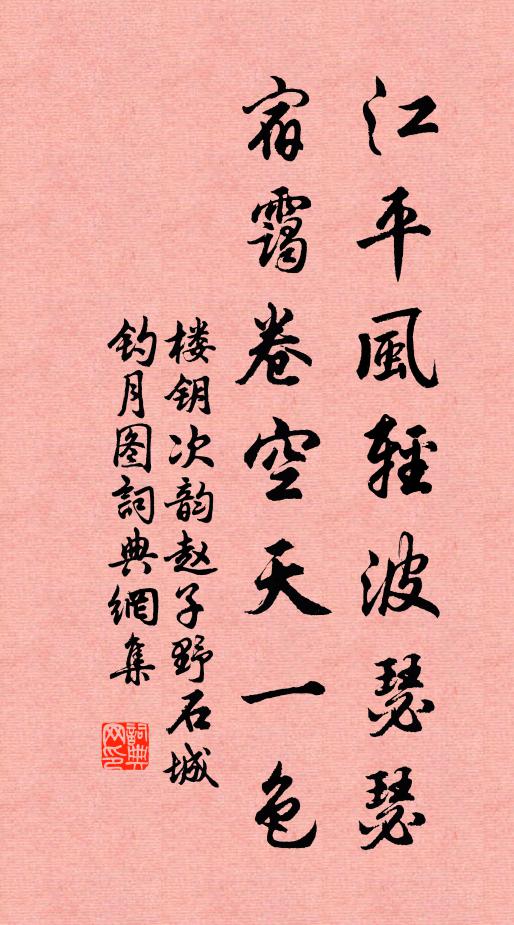 江平風輕波瑟瑟
宿靄卷空天一色
楼钥次韵赵子野石城
钓月图詞典網集
詞典
网印